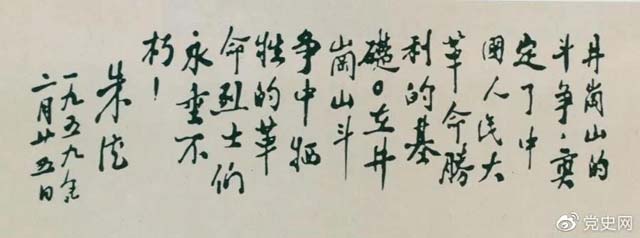 井崗山的
斗争，奠
定了中
国人民大
革命勝
利的基
礎。在井
崗山斗
争中牺
牲的革
命烈士们
永垂不
朽！
朱德
一九五九年
二月廿五日
党史网